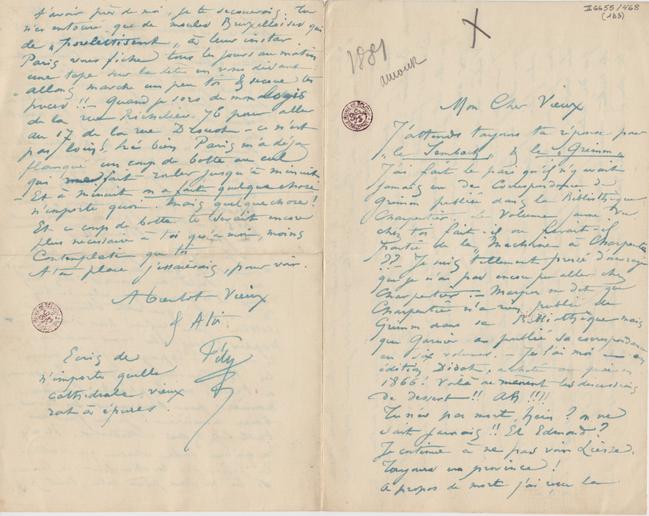 II 6655/468
(103)
1881
Mon Cher Vieux
J'attends toujours ta réponse pour
"le Sambach" & le "Grimm"
J'ai fait le pari qu'il n'y avait
jamais eu de Correspondance de
Grimm publiée dans la Bibliothèque
Charpentier. Le Volume jaune vu
chez toi fait-il ou ferait-il
partie de la "Machine à Charpentier"
?? - Je suis tellement pressé d'ouvrage
que je n'ai pas encore pu aller chez
Charpentier. - dit que
Charpentier n'a rien publié de
Grimm dans sa Bibliothèque mais
que Garnier a publié sa correspondance
en six volumes. - Je l'ai moi en
édition Didot, achetée
1866! Voilà où mènent les discussions
de dessert!! Ah!!!!
Tu n'es pas mort, hein? on ne
sait jamais!! Et Edmond?
Je continue à ne pas voir Liesse.
Toujours en province!
A propos de mort j'ai reçu la
t'avoir près de moi, je te secouerais. Tu
n'es entouré que de moules Bruxelloises qui
te "poulettisent" à leur instar
Paris vous fiche tous les jours au matin
une tape sur la tête en vous disant
allons marche un peu toi & secoue tes
puces!! - Quand je sors de mon logis
de la rue Richelieu 76 pour aller
au 17 de la rue Drouot - ce n'est
pas loin! hé bien Paris m'a déjà
flanqué un coup de botte au cul
qui me fait rouler jusqu'à minuit
Et à minuit m'a fait quelque chose
n'importe quoi - mais quelque chose!
Et ce coup de botte te serait encore
plus nécessaire à toi qu'à moi, moins
Contemplatif que toi
A ta place j'essaierais, pour voir.
A bientôt Vieux
& A toi
Fély
Ecris de
n'importe quelle
cathédrale, vieux
rat à épures.